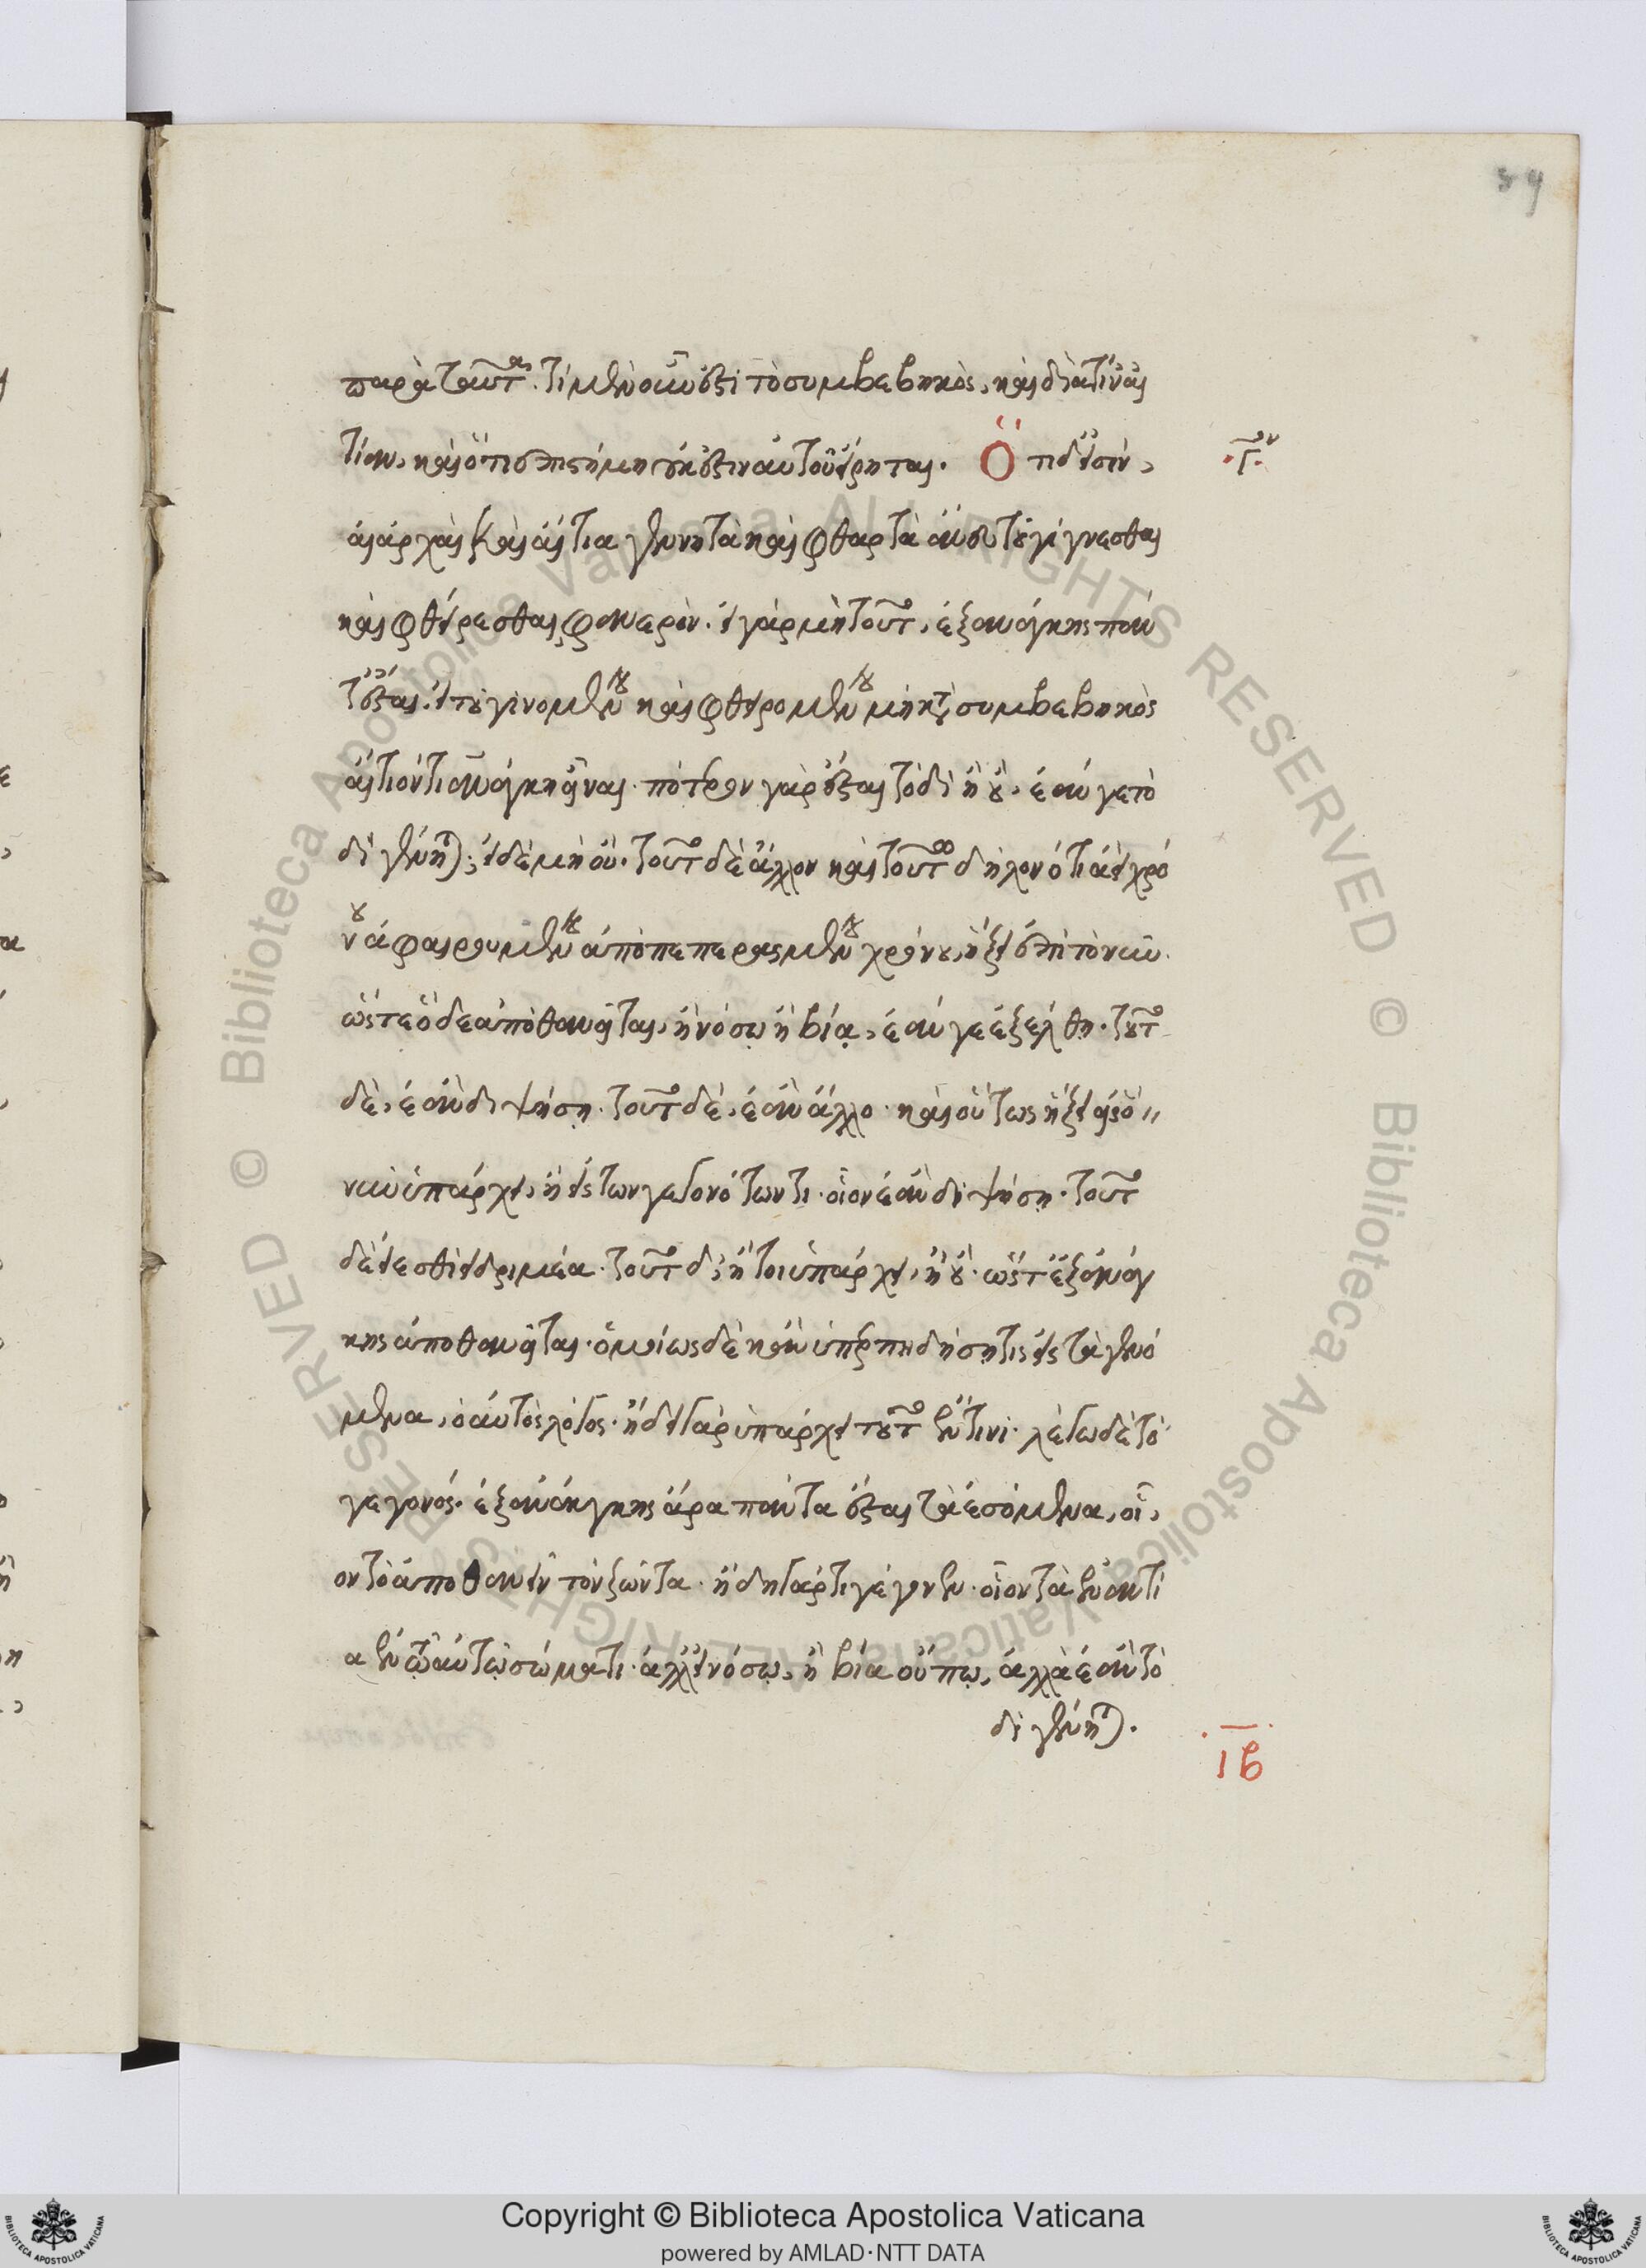 34
παρὰ ταῦτα. τί μὲν οὖν ἐστὶ τὸ συμβεβηκὸς, καὶ διὰ τίν' αἰ
τίαν, καὶ ὅτι ἐπιστήμη οὐκ ἔστιν αὐτοῦ εἴρηται. Ὅτι δ' εἰσὶν,
.Γον.
αἱ ἀρχαὶ καὶ αἴτια γενητὰ καὶ φθαρτὰ ἄνευ τοῦ γίγνεσθαι
καὶ φθείρεσθαι φανερόν. εἰ γὰρ μὴ τοῦτο, ἐξ ἀνάγκης πάν
τ' ἔσται. εἰ τοῦ γινομένου καὶ φθειρομένου μὴ κατὰ συμβεβηκὸς
αἴτιόν τι ἀνάγκη εἶναι. πότερον γὰρ ἔσται τόδὶ ἢ οὔ. ἐάν γε το
δὶ γένηται; εἰ δὲ μὴ οὔ. τοῦτο δὲ ἄλλον καὶ τοῦτο δῆλον ὅτι ἀεὶ χρό
νου ἀφαιρουμένου ἀπὸ πεπερασμένου χρόνου, ἥξει ἐπὶ τὸ νῦν.
ὥστε ὅδε ἀποθανεῖται, ἢ νόσῳ ἢ βίᾳ, ἐάν γε ἐξέλθῃ. τοῦτο
δὲ, ἐὰν διψήσῃ. τοῦτο δὲ, ἐὰν ἄλλο. καὶ οὕτως ἥξει εἰς ὃ
νῦν ὑπάρχει, ἢ εἰς τῶν γεγονότων τι. οἷον ἐὰν διψήσῃ. τοῦτο
δὲ εἰ ἐσθίει δριμέα. τοῦτο δ' ἤτοι ὑπάρχει, ἢ οὔ. ὥστ' ἐξ ἀνάγ
κης ἀποθανεῖται. ὁμοίως δὲ κἂν ὑπερπηδήσῃ τις εἰς τὰ γενό
μενα, ὁ αὐτὸς λόγος. ἤδη γὰρ ὑπάρχει τοῦτο ἔν τινι. λέγω δὲ τὸ
γεγονός. ἐξ ἀνάγκης ἄρα πάντα ἔσται τὰ ἐσόμενα, οἷ,
ον τὸ ἀποθανεῖν τὸν ζῶντα. ἤδη γάρ τι γέγονεν. οἷον τὰ ἐναντί
α ἐν τῷ αὐτῷ σώματι. ἀλλ' εἰ νόσῳ, ἢ βίᾳ οὔπω, ἀλλὰ ἐὰν το
δὶ γένηται.
ιβ
Copyright © Biblioteca Apostolica Vaticana
powered by AMLAD·NTT DATA